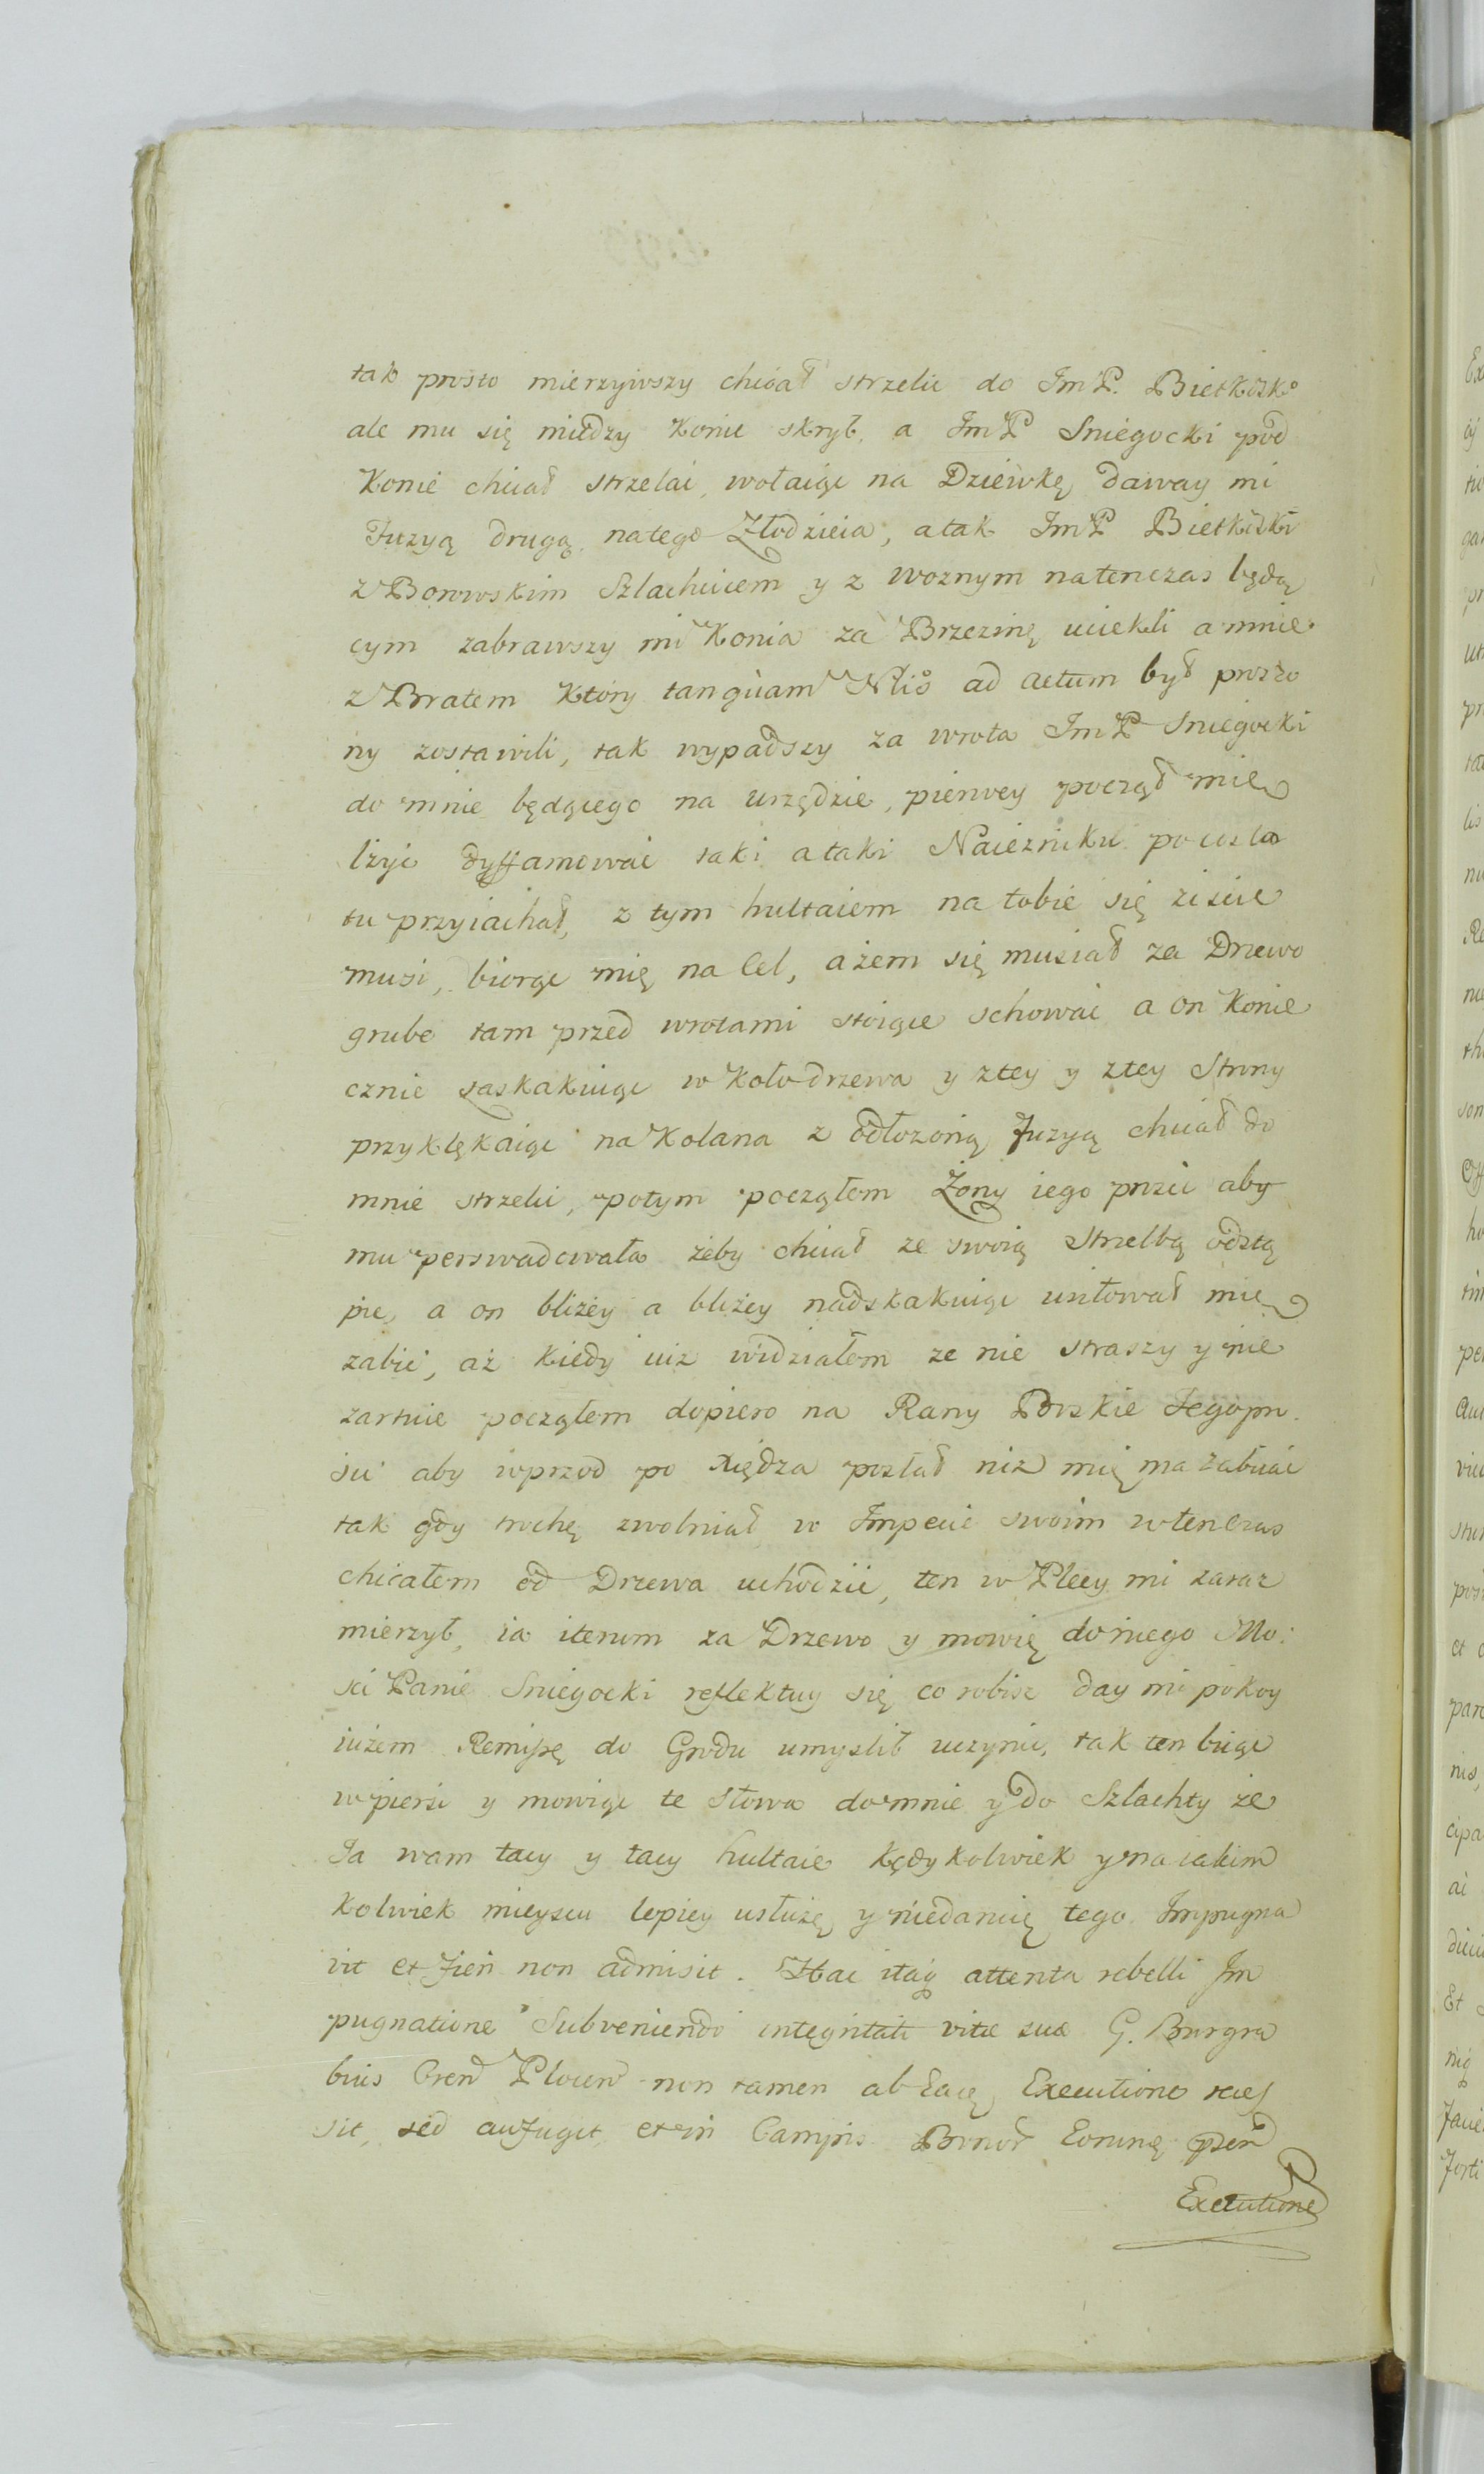 tak prosto mierzyiwszy chciał strzelic do ImP. Bietkosko
ale mu się między Konie skrył, a ImP Sniegocki pod
Konie chciał strzelac, wołaiąc na Dziewkę daway mi
Fuzyą drugą, natego Złodzieia, atak ImP Bietkoski
z Borowskim Szlachcicem y z woznym natenczas będą
cym zabrawszy mi Konia za Brzezinę uciekli a mnie
z Bratem Ktory tanquam Nłis ad actum był proszo
ny zostawili, tak wypadszy za wrota ImP Sniegocki
do mnie będącego na urzędzie, pierwey począł mię
lżyc dyffamowac taki ataki Naiezniku pocosto
tu przyiachał, z tym hultaiem na tobie się ziscie
musi, biorąc mię na Cel, ażem się musiał za Drzewo
grube tam przed wrotami stoiące schowac a on Konie
cznie zaskakuiąc w Koło drzewa y ztey y ztey Strony
przyklękaiąc na Kolana z odłożoną Fuzyą chciał do
mnie strzelic, potym począłem Żony iego prosic aby
mu perswadowała żeby chciał ze swoią Strzelbą odstą
pic, a on bliżey a bliżey nadskakuiąc usiłował mię
zabic, aż kiedy iuż widziałem ze nie straszy y nie
zartuie począłem dopiero na Rany Boskie Jego pro
sic aby wprzod po Xiędza posłał niz mię ma zabiiac
tak gdy trochę zwolniał w Impecie swoim wtenczas
chciałem od Drzewa uchodzic, ten w Plecy mi zaraz
mierzył, ia iterum za Drzewo y mowię do niego Mo:
sci Panie Sniegocki reflektuy się co robisz day mi pokoy
iużem Remissę do Grodu umyslił uczynic, tak ten biiąc
w piersi y mowiąc te Słowa do mnie y do Szlachty że
Ja wam tacy y tacy hultaie kędykolwiek y na iakim
kolwiek mieyscu lepiey usłużę y niedamię tego. Impugna
vit et fieri non admisit. Hac itaq attenta rebelli Im
pugnatione Subveniendo integritati vitæ suæ G. Burgra
bius Cren Plocen non tamen ab Executione reces
sit, sed aufugit, et in Campis Eorum psen
Executione